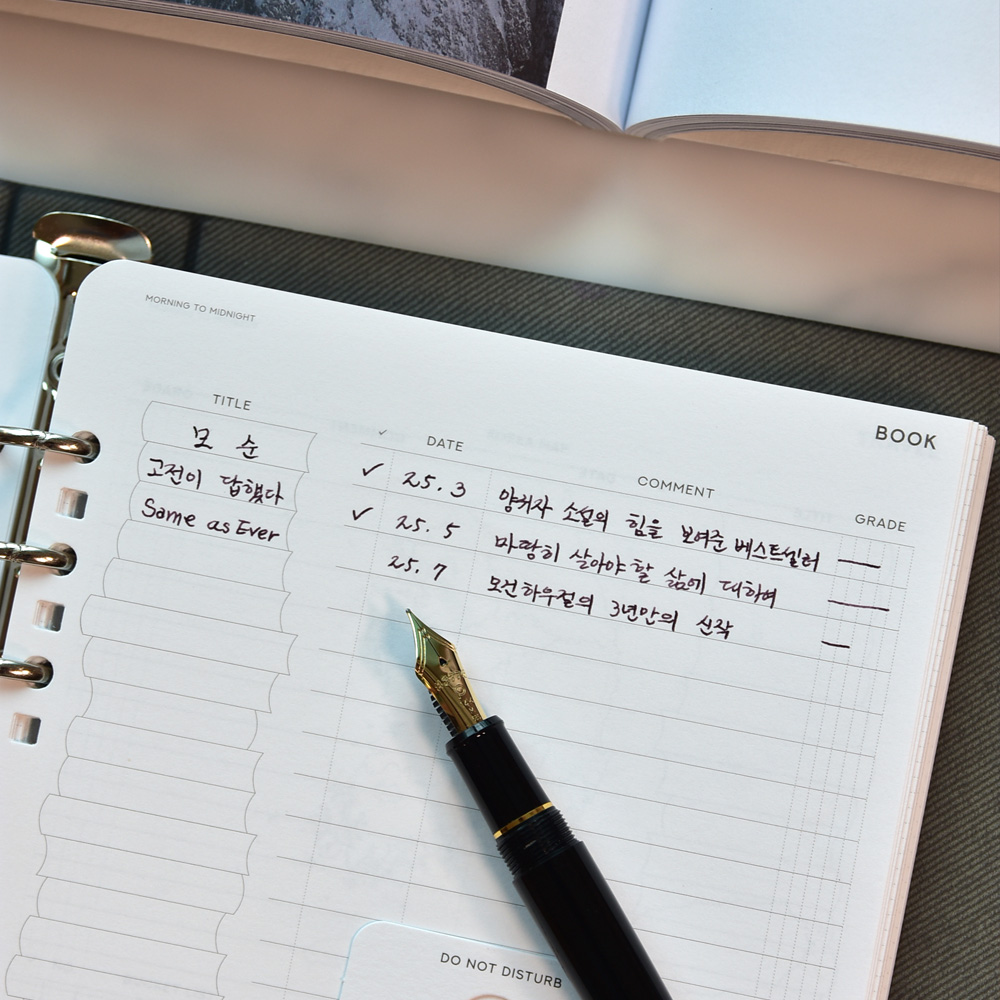 MORNING TO MIDNIGHT
BOOK
TITLE ✓ DATE COMMENT GRADE
모순 ✓ 25.3 양귀자 소설의 힘을 보여준 베스트셀러
고전이 답했다 ✓ 25.5 마땅히 살아야 할 삶에 대하여
Same as Ever 25.7 모건하우절의 3년만의 신작
DO NOT DISTURB